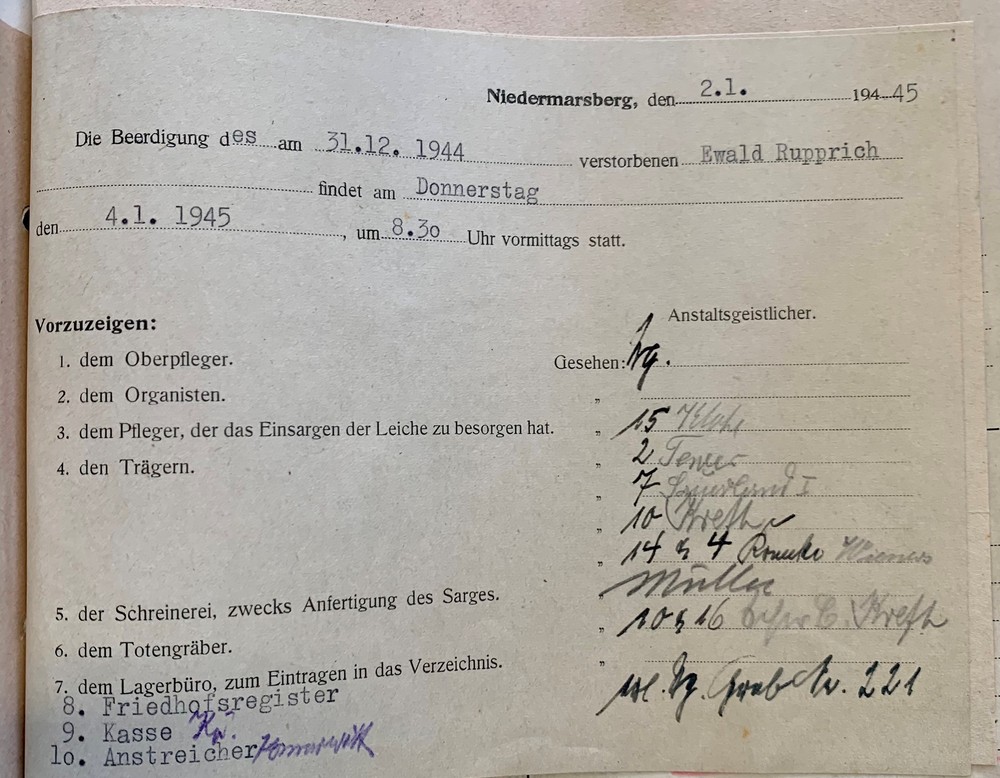 Niedermarsberg, den 2.1. 194 45
Die Beerdigung des am 31.12. 1944 verstorbenen Ewald Rupprich
findet am Donnerstag
den 4.1. 1945, um 8.30 Uhr vormittags statt.
Anstaltsgeistlicher.
Vorzuzeigen:
1. dem Oberpfleger. Gesehen:
2. dem Organisten. „
3. dem Pfleger, der das Einsargen der Leiche zu besorgen hat. „ 15
4. den Trägern. „ 2
„ 7 Sauerland I
„ 10 Kreft
„ 14 & 4
5. der Schreinerei, zwecks Anfertigung des Sarges. „ Müller
6. dem Totengräber. „ 10 & 16 Kreft
7. dem Lagerbüro, zum Eintragen in das Verzeichnis. „
8. Friedhofsregister Grab Nr. 221
9. Kasse
10. Anstreicher